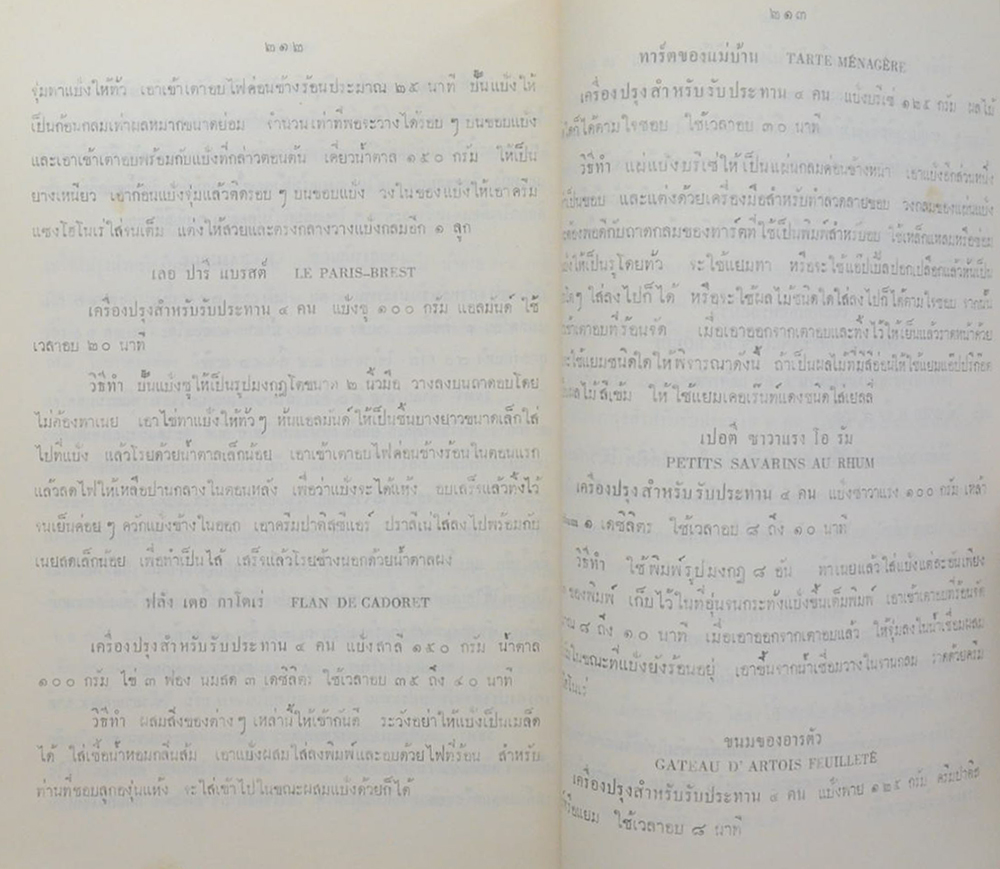 ๒๑๒
จุ่มทาแป้งให้ทั่ว เอาเข้าเตาอบไฟค่อนข้างร้อนประมาณ ๒๕ นาที ปั้นแป้งให้
เป็นก้อนกลมเท่าผลหมากขนาดย่อม จำนวนเท่าที่พอจะวางได้รอบ ๆ บนขอบแป้ง
และเอาเข้าเตาอบพร้อมกับแป้งที่กล่าวตอนต้น เคี่ยวน้ำตาล ๑๕๐ กรัม ให้เป็น
ยางเหนียว เอาก้อนแป้งจุ่มแล้วติดรอบ ๆ บนขอบแป้ง วงในของแป้งให้เอาครีม
แซงโฮโนเร่ใส่จนเต็ม แต่งให้สวยและตรงกลางวางแป้งกลมอีก ๑ ลูก
เลอ ปารี แบรสต์ LE PARIS-BREST
เครื่องปรุงสำหรับรับประทาน ๔ คน แป้งชู ๑๐๐ กรัม แอลมันด์ ใช้
เวลาอบ ๒๐ นาที
วิธีทำ ปั้นแป้งชูให้เป็นรูปมงกุฎโตขนาด ๒ นิ้วมือ วางลงบนถาดอบโดย
ไม่ต้องทาเนย เอาไข่ทาแป้งให้ทั่ว ๆ หั่นแอลมันด์ให้เป็นชิ้นบางยาวขนาดเล็กใส่
ไปที่แป้ง แล้วโรยด้วยน้ำตาลเล็กน้อย เอาเข้าเตาอบไฟค่อนข้างร้อนในตอนแรก
แล้วลดไฟให้เหลือปานกลางในตอนหลัง เพื่อว่าแป้งจะได้แห้ง อบเสร็จแล้วทิ้งไว้
จนเย็นค่อย ๆ ควักแป้งข้างในออก เอาครีมปาติสซีแอร์ ปราลีเน่ใส่ลงไปพร้อมกับ
เนยสดเล็กน้อย เพื่อทำเป็นไส้ เสร็จแล้วโรยข้างนอกด้วยน้ำตาลผง
ฟลัง เดอ กาโดเร่ FLAN DE CADORET
เครื่องปรุงสำหรับรับประทาน ๔ คน แป้งสาลี ๑๕๐ กรัม น้ำตาล
๑๐๐ กรัม ไข่ ๓ ฟอง นมสด ๓ เดซิลิตร ใช้เวลาอบ ๓๕ ถึง ๔๐ นาที
วิธีทำ ผสมสิ่งของต่าง ๆ เหล่านี้ให้เข้ากันดี ระวังอย่าให้แป้งเป็นเมล็ด
ได้ ใส่เชื้อน้ำหอมกลิ่นส้ม เอาแป้งผสมใส่ลงพิมพ์และอบด้วยไฟที่ร้อน สำหรับ
ท่านที่ชอบลูกองุ่นแห้ง จะใส่เข้าไปในขณะผสมแป้งด้วยก็ได้
๒๑๓
ทาร์ตของแม่บ้าน TARTE MÉNAGÈRE
เครื่องปรุงสำหรับรับประทาน ๔ คน แป้งบริเซ่ ๑๒๕ กรัม ผลไม้
ใดก็ได้ตามใจชอบ ใช้เวลาอบ ๓๐ นาที
วิธีทำ แผ่แป้งบริเซ่ให้เป็นแผ่นกลมค่อนข้างหนา เอาแป้งอีกส่วนหนึ่ง
ทำเป็นขอบ และแต่งด้วยเครื่องมือสำหรับทำลวดลายขอบ วงกลมของแผ่นแป้ง
จะต้องพอดีกับถาดกลมของทาร์ตที่ใช้เป็นพิมพ์สำหรับอบ ใช้เหล็กแหลมหรือซ่อม
ให้เป็นรูโดยทั่ว จะใช้แยมทา หรือจะใช้แอ๊ปเปิ้ลปอกเปลือกแล้วหั่นเป็น
ใส่ลงไปก็ได้ หรือจะใช้ผลไม้ชนิดใดใส่ลงไปก็ได้ตามใจชอบ จากนั้น
เข้าเตาอบที่ร้อนจัด เมื่อเอาออกจากเตาอบและทิ้งไว้ให้เย็นแล้วราดหน้าด้วย
จะใช้แยมชนิดใดให้พิจารณาดังนี้ ถ้าเป็นผลไม้ที่มีสีอ่อนให้ใช้แยมแอ๊ปปริกอต
ผลไม้สีเข้ม ให้ใช้แยมเคอเร้นท์แดงชนิดใสเยลลี่
เปอตี ซาวาแรง โอ รัม
PETITS SAVARINS AU RHUM
เครื่องปรุงสำหรับรับประทาน ๔ คน แป้งซาวาแรง ๑๐๐ กรัม เหล้า
๑ เดซิลิตร ใช้เวลาอบ ๘ ถึง ๑๐ นาที
วิธีทำ ใช้พิมพ์รูปมงกุฎ ๘ อัน ทาเนยแล้วใส่แป้งแต่ละอันเพียง
ของพิมพ์ เก็บไว้ในที่อุ่นจนกระทั่งแป้งขึ้นเต็มพิมพ์ เอาเข้าเตาอบที่ร้อนจัด
๘ ถึง ๑๐ นาที เมื่อเอาออกจากเตาอบแล้ว ให้จุ่มลงในน้ำเชื่อมผสม
ในขณะที่แป้งยังร้อนอยู่ เอาขึ้นจากน้ำเชื่อมวางในจานกลม ราดด้วยครีม
ขนมของอารตัว
GATEAU D' ARTOIS FEUILLETÉ
เครื่องปรุงสำหรับรับประทาน ๔ คน แป้งพาย ๑๒๕ กรัม ครีมปาติส
หรือแยม ใช้เวลาอบ ๘ นาที